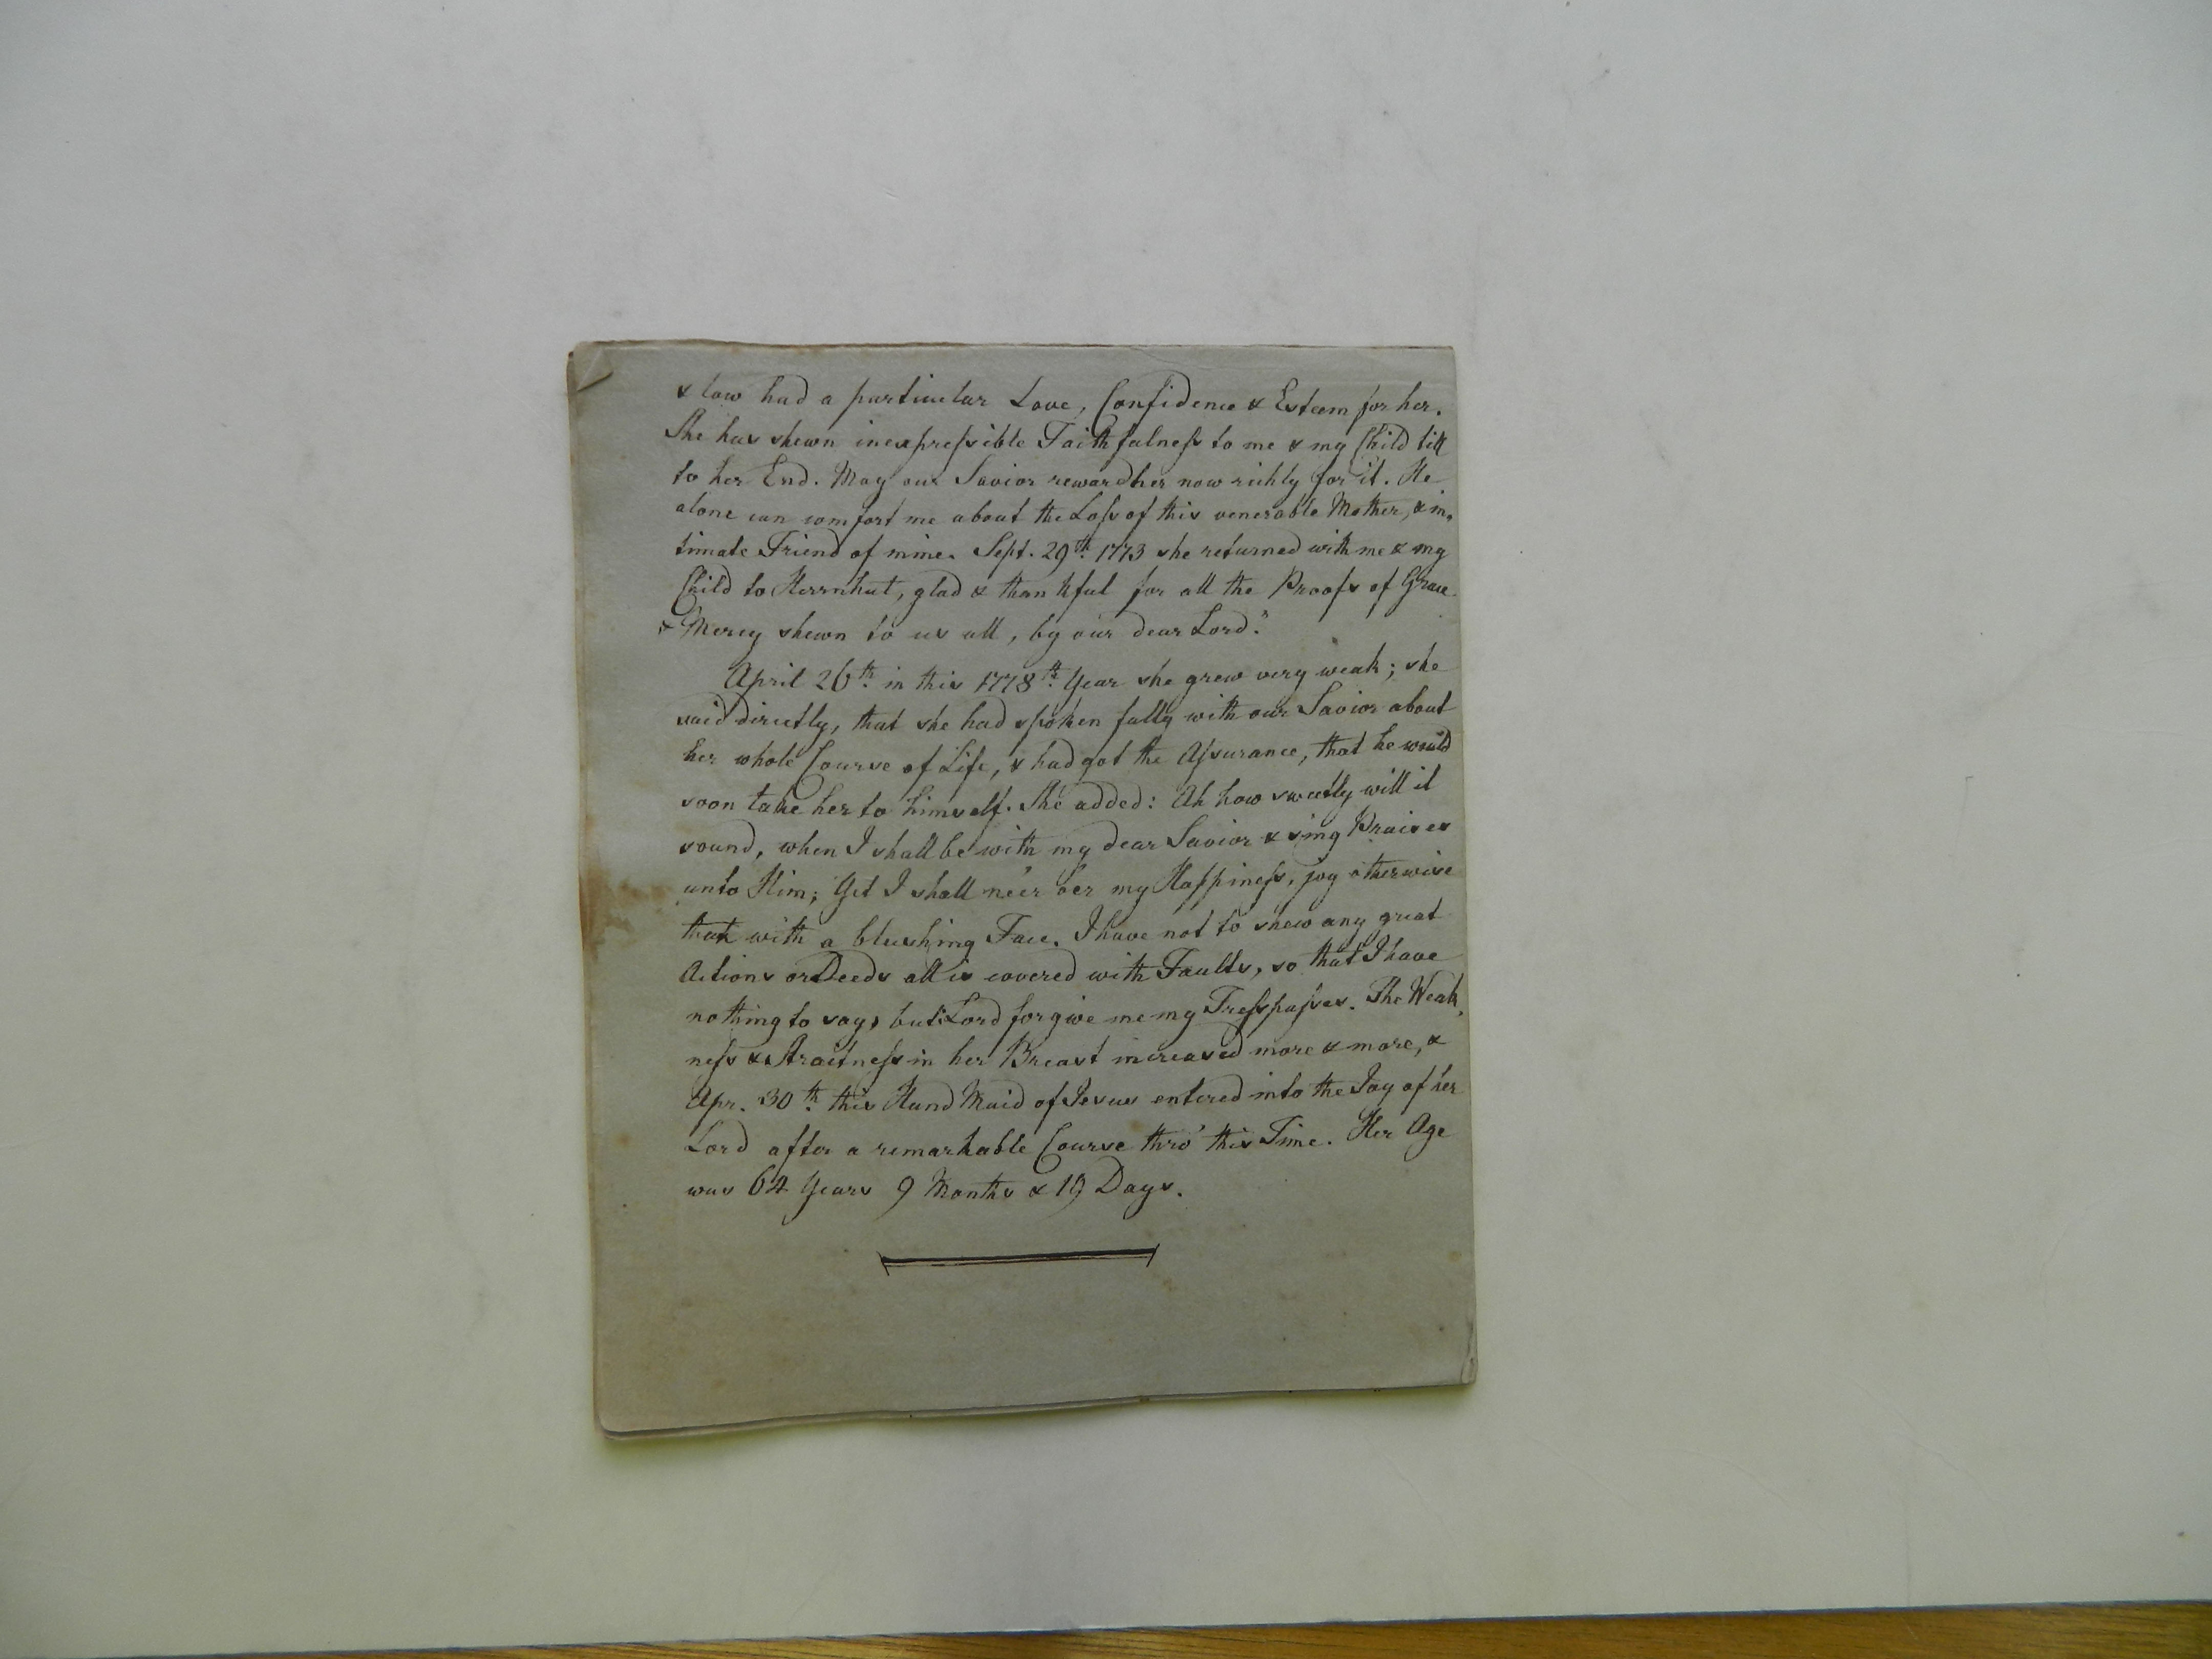 & low had a particular Love, Confidence & Esteem for her.
She has shewn inexpressible Faithfulness to me & my Child till
to her End. May our Savior reward her now richly for it. He
alone can comfort me about the Loss of this venerable Mother, & in-
timate Friend of mine. Sept. 29th. 1773 she returned with me & my
Child to Herrnhut, glad & thankful for all the Proofs of Grace
& Mercy shewn to us all, by our dear Lord."
April 26th. in this 1778th. Year she grew very weak; she
said directly, that she had spoken fully with our Savior about
her whole Course of Life, & had got the Assurance, that he would
soon take her to himself. She added: Ah how sweetly will it
sound, when I shall be with my dear Savior & sing Praises
unto Him; Yet I shall ne'er o'er my Happiness, joy otherwise
than with a blushing Face. I have not to shew any great
Actions or Deeds all is covered with Faults, so that I have
nothing to say, but: Lord forgive me my Tresspasses. The Weak-
ness & Straitness in her Breast increased more & more, &
Apr. 30th. this Hand Maid of Jesus entered into the Joy of her
Lord after a remarkable Course thro' this Time. Her Age
was 64 Years 9 Months & 19 Days.